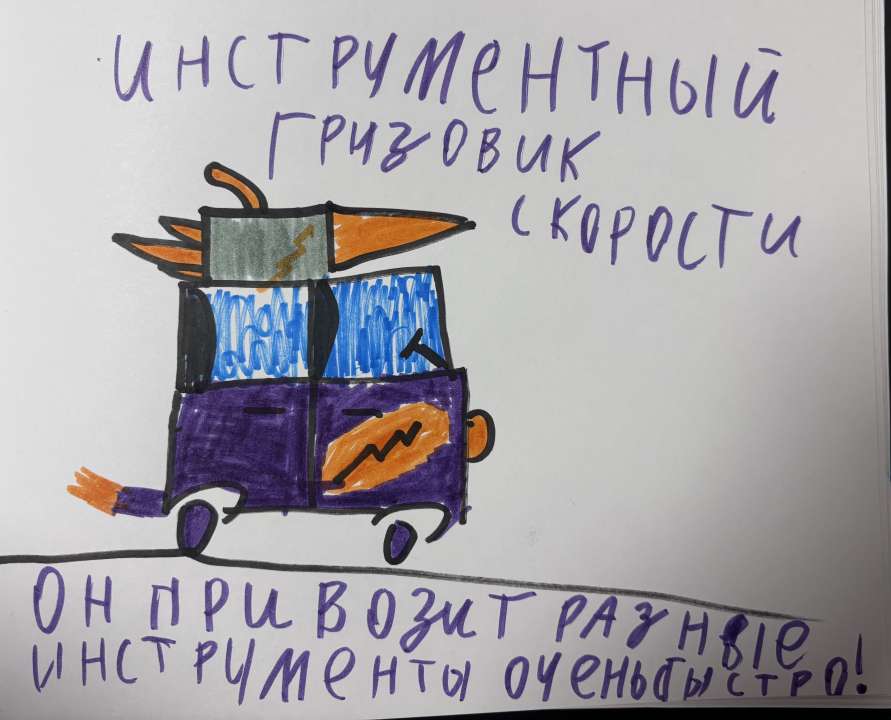 ИНСТРУМЕНТНЫЙ
ГРУЗОВИК
СКОРОСТИ
ОН ПРИВОЗИТ РАЗНЫЕ
ИНСТРУМЕНТЫ ОЧЕНЬ БЫСТРО!